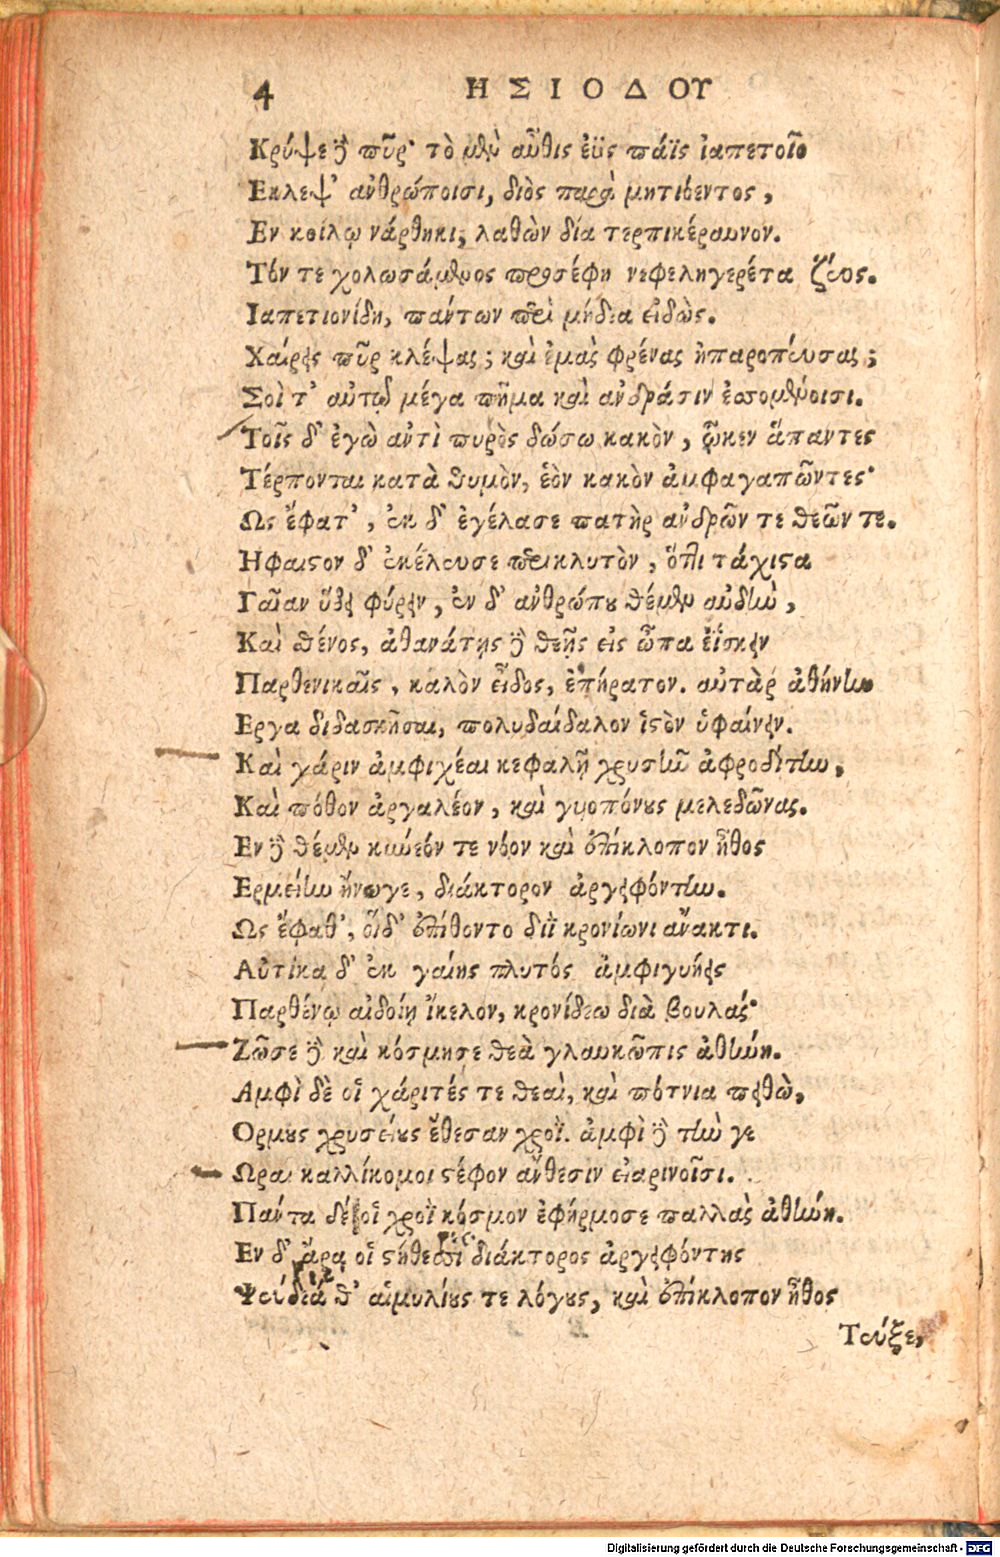 4 ΗΣΙΟΔΟΥ
Κρύψε δὲ πῦρ· τὸ μὲν αὖθις ἐῢς πάϊς ἰαπετοῖο
Εκλεψ' ἀνθρώποισι, διὸς παρὰ μητιόεντος,
Εν κοίλῳ νάρθηκι, λαθὼν δία τερπικέραυνον.
Τόν τε χολωσάμενος προσέφη νεφεληγερέτα ζεύς.
Ιαπετιονίδη, πάντων περὶ μήδεα εἰδὼς.
Χαίρεις πῦρ κλέψας; καὶ ἐμὰς φρένας ἠπαροπεύσας;
Σοὶ τ' αὐτῷ μέγα πῆμα καὶ ἀνδράσιν ἐσσομένοισι.
Τοῖς δ' ἐγὼ ἀντὶ πυρὸς δώσω κακὸν, ᾧκεν ἅπαντες
Τέρπονται κατὰ θυμὸν, ἑὸν κακὸν ἀμφαγαπῶντες·
Ως ἔφατ', ἐκ δ' ἐγέλασε πατὴρ ἀνδρῶν τε θεῶν τε.
Ηφαιστον δ' ἐκέλευσε περικλυτὸν, ὅττι τάχιστα
Γαῖαν ὕδει φύρειν, ἐν δ' ἀνθρώπου θέμεν αὐδὴν,
Καὶ θένος, ἀθανάτῃς δὲ θεῇς εἰς ὦπα ἐΐσκειν
Παρθενικαῖς, καλὸν εἶδος, ἐπήρατον. αὐτὰρ ἀθήνην
Εργα διδασκῆσαι, πολυδαίδαλον ἱστὸν ὑφαίνειν.
Καὶ χάριν ἀμφιχέαι κεφαλῇ χρυσῆν ἀφροδίτην,
Καὶ πόθον ἀργαλέον, καὶ γυοπόνους μελεδῶνας.
Εν δὲ θέμεν κυνεόν τε νόον καὶ ἐπίκλοπον ἦθος
Ερμείην ἤνωγε, διάκτορον ἀργειφόντην.
Ως ἔφαθ', οἳ δ' ἐπίθοντο διῒ κρονίωνι ἄνακτι.
Αὐτίκα δ' ἐκ γαίης πλυτός ἀμφιγυήεις
Παρθένῳ αἰδοίῃ ἴκελον, κρονίδεω διὰ βουλάς·
Ζῶσε δὲ καὶ κόσμησε θεὰ γλαυκῶπις ἀθήνη.
Αμφὶ δὲ οἱ χάριτές τε θεαὶ, καὶ πότνια πειθὼ,
Ορμους χρυσείους ἔθεσαν χροΐ. ἀμφὶ δὲ τὴν γε
Ωραι καλλίκομοι στέφον ἄνθεσιν εἰαρινοῖσι.
Πάντα δέ οἱ χροῒ κόσμον ἐφήρμοσε παλλὰς ἀθήνη.
Εν δ' ἄρα οἱ στήθεσσι διάκτορος ἀργειφόντης
Ψεύδεά θ' αἱμυλίους τε λόγους, καὶ ἐπίκλοπον ἦθος
Τεύξε,
Digitalisierung gefördert durch die Deutsche Forschungsgemeinschaft - DFG